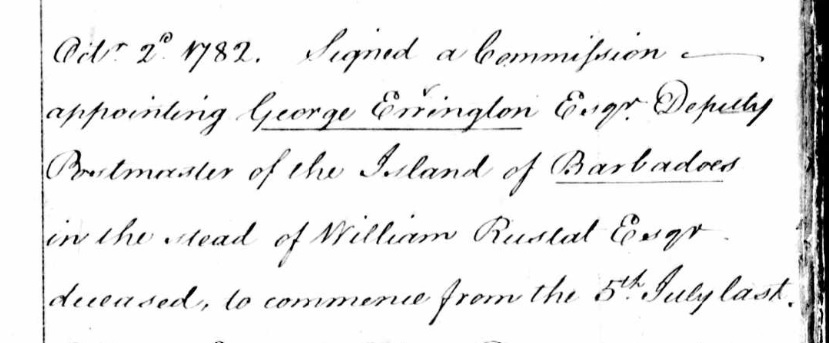 Octr. 2d. 1782. Signed a Commission
appointing George Errington Esqr. Deputy
Postmaster of the Island of Barbadoes
in the stead of William Rustal Esqr.
deceased, to commence from the 5th. July last.